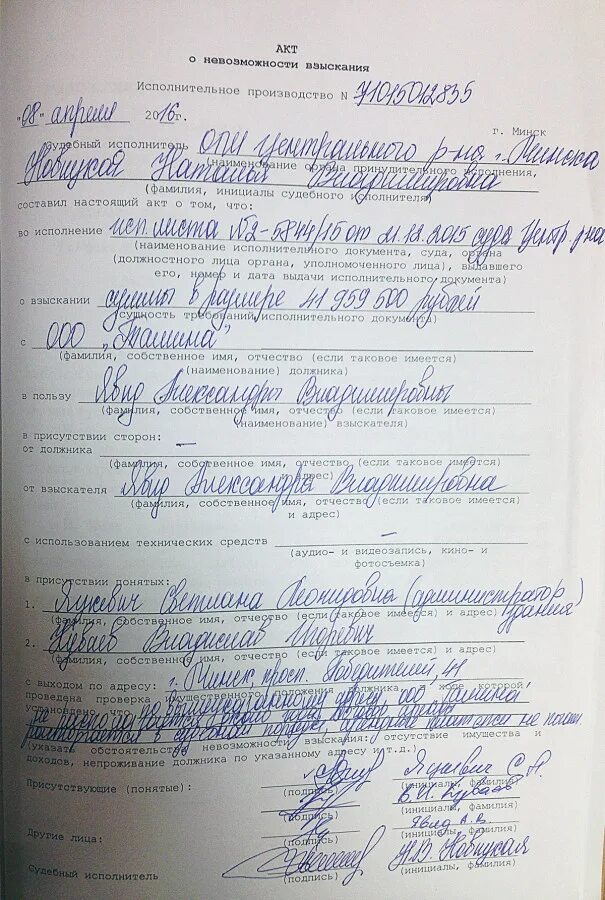 АКТ
о невозможности взыскания
Исполнительное производство N 71015012835
"08" апреля 2016г.
г. Минск
Судебный исполнитель ОПИ Центрального р-на г. Минска
(наименование органа принудительного исполнения,
Новицкая Наталья Владимировна
(фамилия, инициалы судебного исполнителя)
составил настоящий акт о том, что:
во исполнение исп. листа №2-5844/15 от 21.12.2015 суда Центр. р-на
(наименование исполнительного документа, суда, органа
(должностного лица органа, уполномоченного лица), выдавшего
его, номер и дата выдачи исполнительного документа)
о взыскании суммы в размере 41 959 500 рублей
(сущность требований исполнительного документа)
с ООО "Талина"
(фамилия, собственное имя, отчество (если таковое имеется)
(наименование) должника)
в пользу Явид Александры Владимировны
(фамилия, собственное имя, отчество (если таковое имеется)
(наименование) взыскателя)
в присутствии сторон:
от должника —
(фамилия, собственное имя, отчество (если таковое имеется)
и адрес)
от взыскателя Явид Александра Владимировна
(фамилия, собственное имя, отчество (если таковое имеется)
и адрес)
с использованием технических средств —
(аудио- и видеозапись, кино- и
фотосъемка)
в присутствии понятых:
1. Яцкевич Светлана Леонидовна (администратор здания)
(фамилия, собственное имя, отчество (если таковое имеется) и адрес)
2. Кубаев Владислав Игоревич
(фамилия, собственное имя, отчество (если таковое имеется) и адрес)
с выходом по адресу: г. Минск просп. Победителей, 41
проведена проверка имущественного положения должника, в ходе которой
установлено, что по адресу ООО "Талина"
не располагается
в судебном порядке, не
(указать обстоятельства невозможности взыскания: отсутствие имущества и
доходов, непроживание должника по указанному адресу и т.д.)
Присутствующие (понятые): Яцкевич С.Л.
(подпись) (инициалы, фамилия)
В.И. Кубаев
(подпись) (инициалы, фамилия)
Явид А.В.
Другие лица:
(подпись) (инициалы, фамилия)
Судебный исполнитель Н.В. Новицкая
(подпись) (инициалы, фамилия)